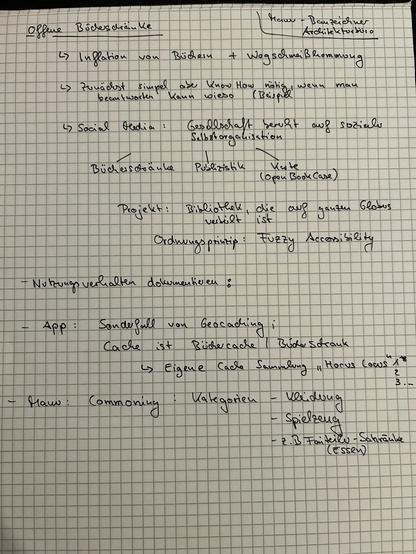 Offene Bücherschränke
Manu - Bauzeichner
Architekturbüro
↳ Inflation von Büchern + Wegschmeißhemmung
↳ Zunächst simpel aber Know How nötig, wenn man
beantworten kann wieso (Beispiel
↳ Social Media: Gesellschaft beruht auf sozialer
Selbstorganisation
Bücherschränke Publizistik Kute
(Open Book Case)
Projekt: Bibliothek, die auf ganzen Globus
verteilt ist
Ordnungsprinzip: Fuzzy Accessibility
- Nutzungsverhalten dokumentieren:
- App: Sonderfall von Geocaching;
Cache ist Büchercache / Bücherschrank
↳ Eigene Cache Sammlung „Hocus Locus" 1
2
3...
- Manu: Commoning: Kategorien - Kleidung
- Spielzeug
- z.B Fairteiler-Schränke
(Essen)